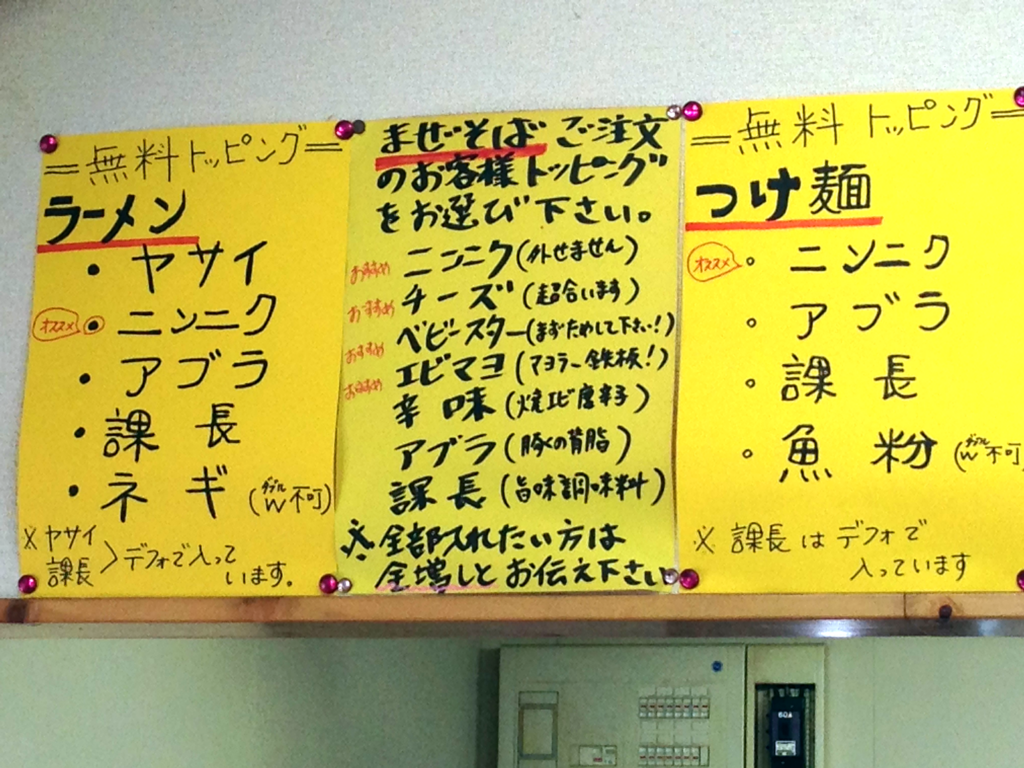 =無料トッピング=
ラーメン
・ヤサイ
オススメ ・ニンニク
・アブラ
・課長
・ネギ(ダブルW不可)
※ヤサイ
課長 >デフォで入って
います。
まぜそばご注文
のお客様トッピング
をお選び下さい。
おすすめ ニンニク(外せません)
おすすめ チーズ(超合います)
おすすめ ベビースター(まずためして下さい!)
おすすめ エビマヨ(マヨラー鉄板!)
辛味(焼エビ唐辛子)
アブラ(豚の背脂)
課長(旨味調味料)
※全部入れたい方は
全増しとお伝え下さい
=無料トッピング=
つけ麺
オススメ ・ニンニク
・アブラ
・課長
・魚粉(ダブルW不可)
※課長はデフォで
入っています
60A